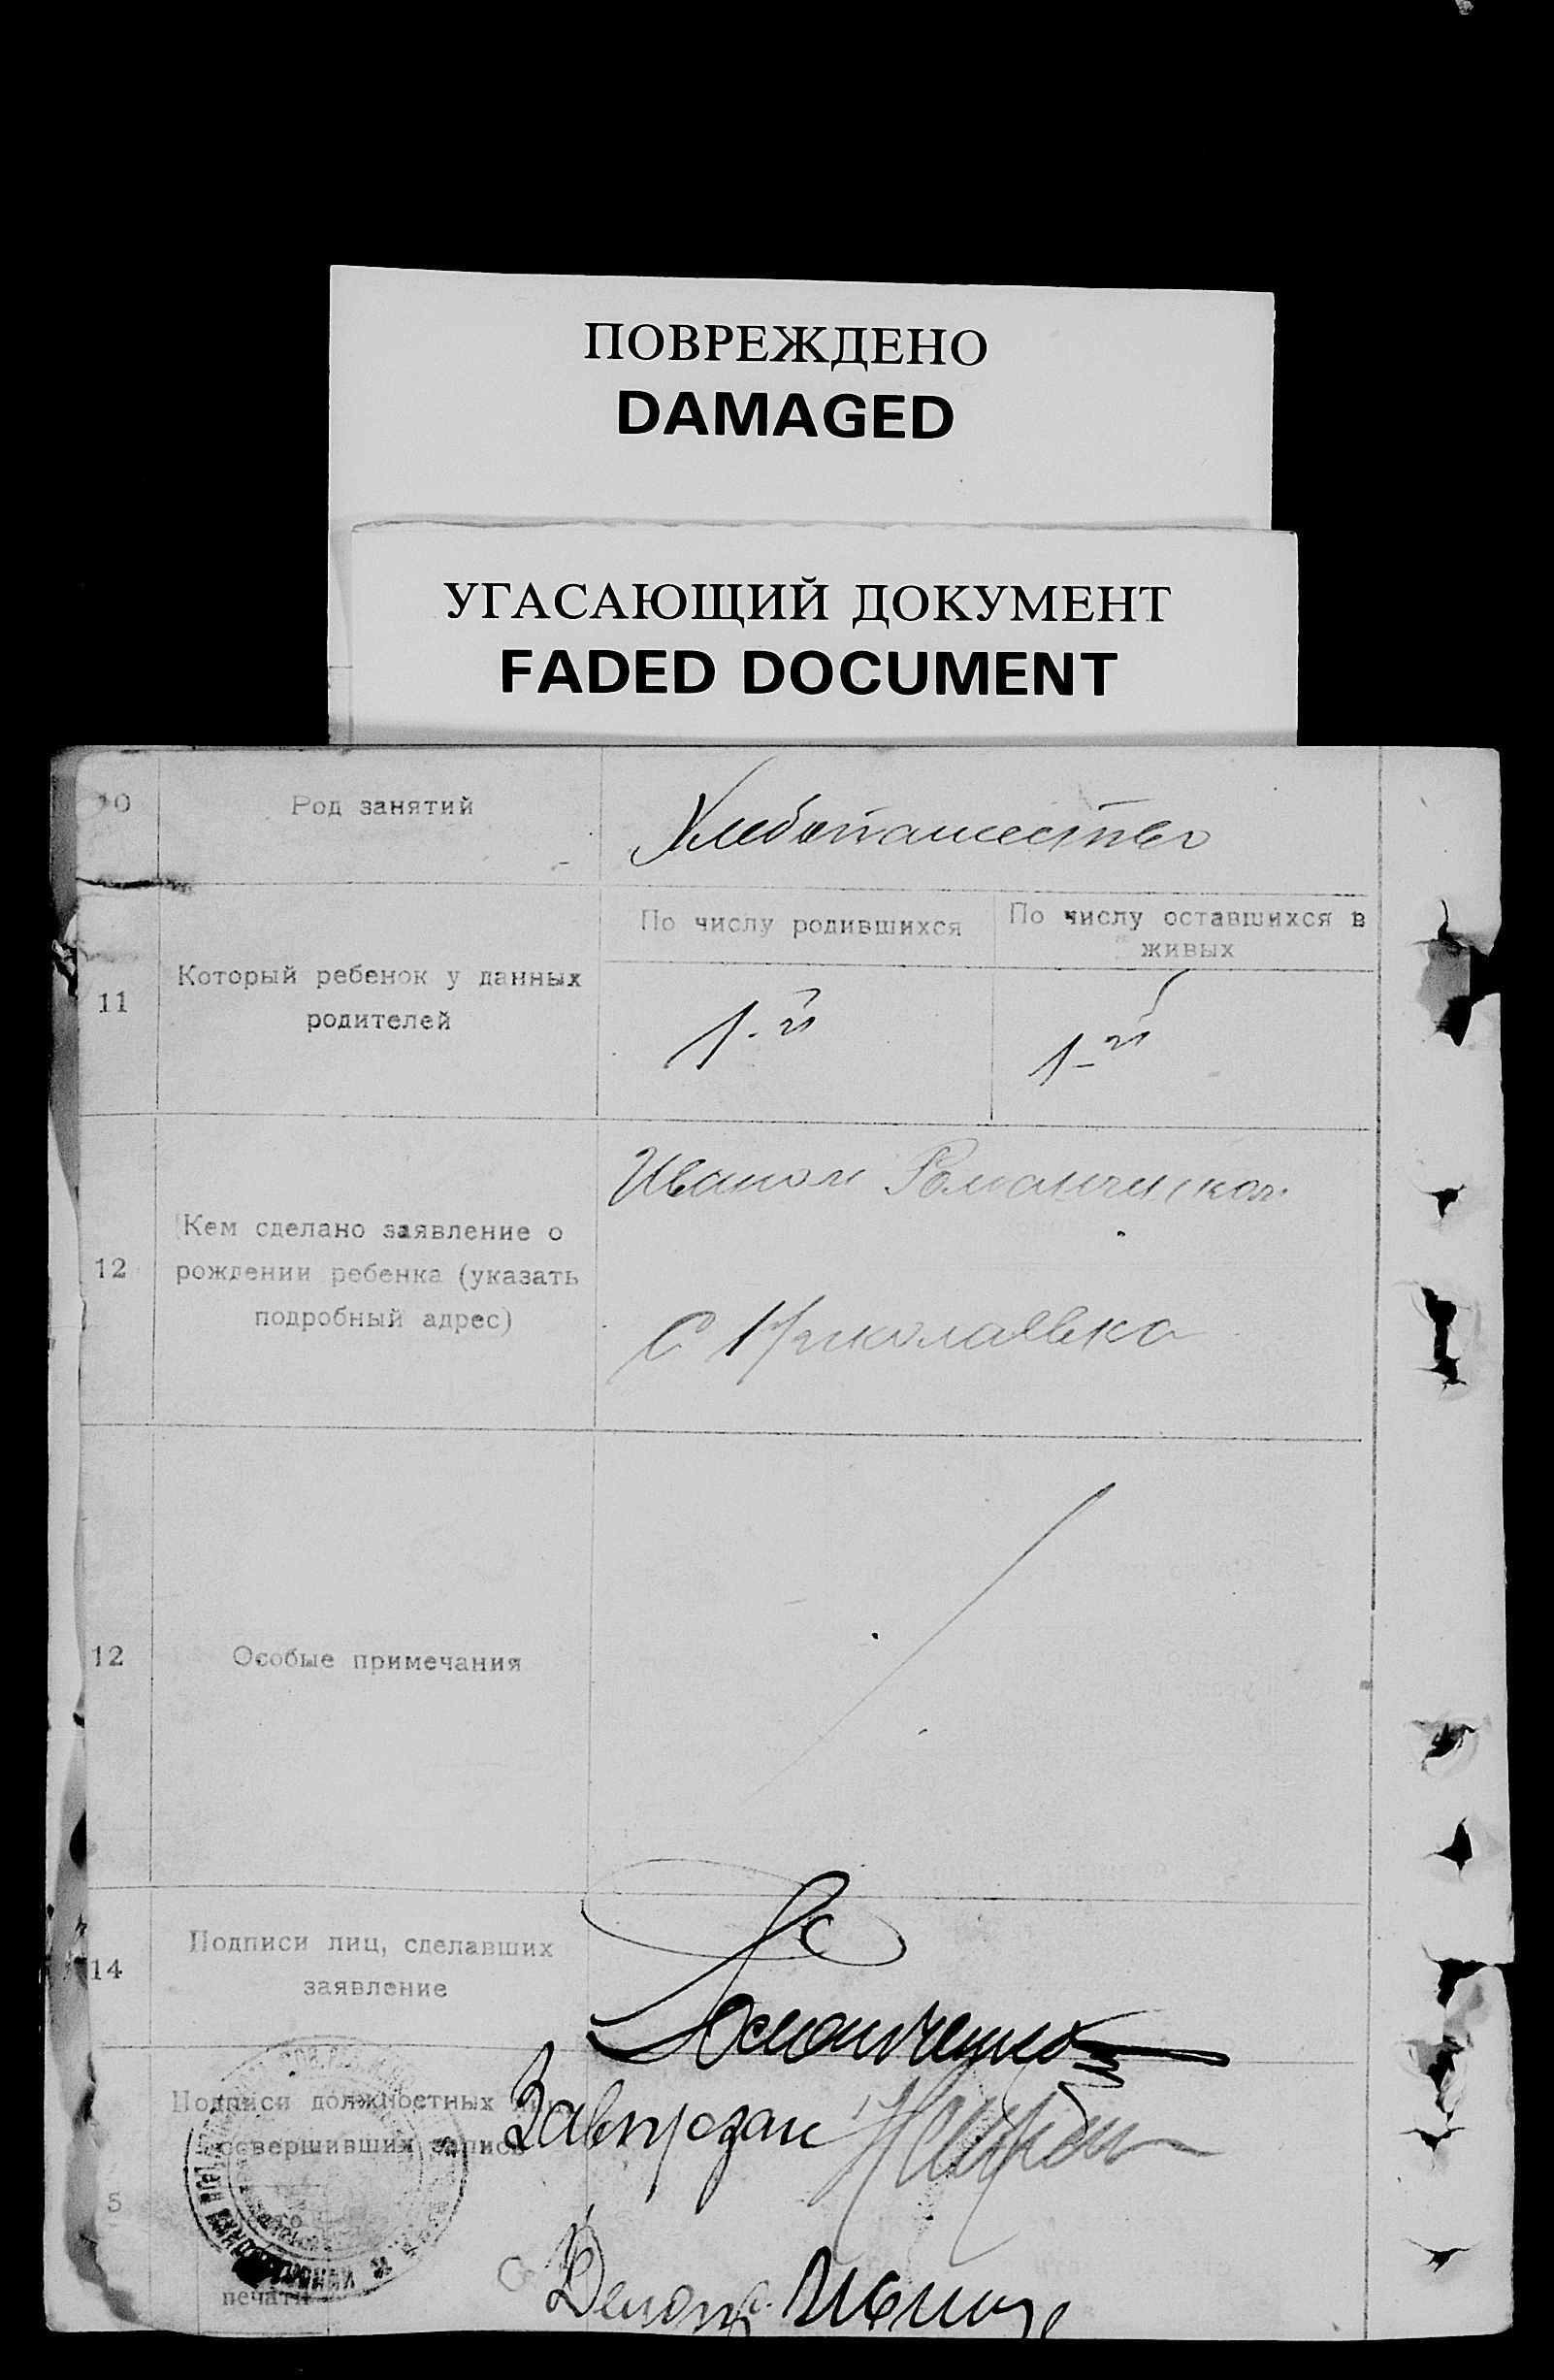 ПОВРЕЖДЕНО
DAMAGED
УГАСАЮЩИЙ ДОКУМЕНТ
FADED DOCUMENT
10 Род занятий Хлебопашество
По числу родившихся По числу оставшихся в
живых
11 Который ребенок у данных
родителей
1-й 1-й
Иваном
12 Кем сделано заявление о
рождении ребенка (указать
подробный адрес)
С Николаевка
12 Особые примечания
14 Подписи лиц, сделавших
заявление
Романченко
Подписи должностных
совершивших запись
Завпрозап
5
печати
Делопр.